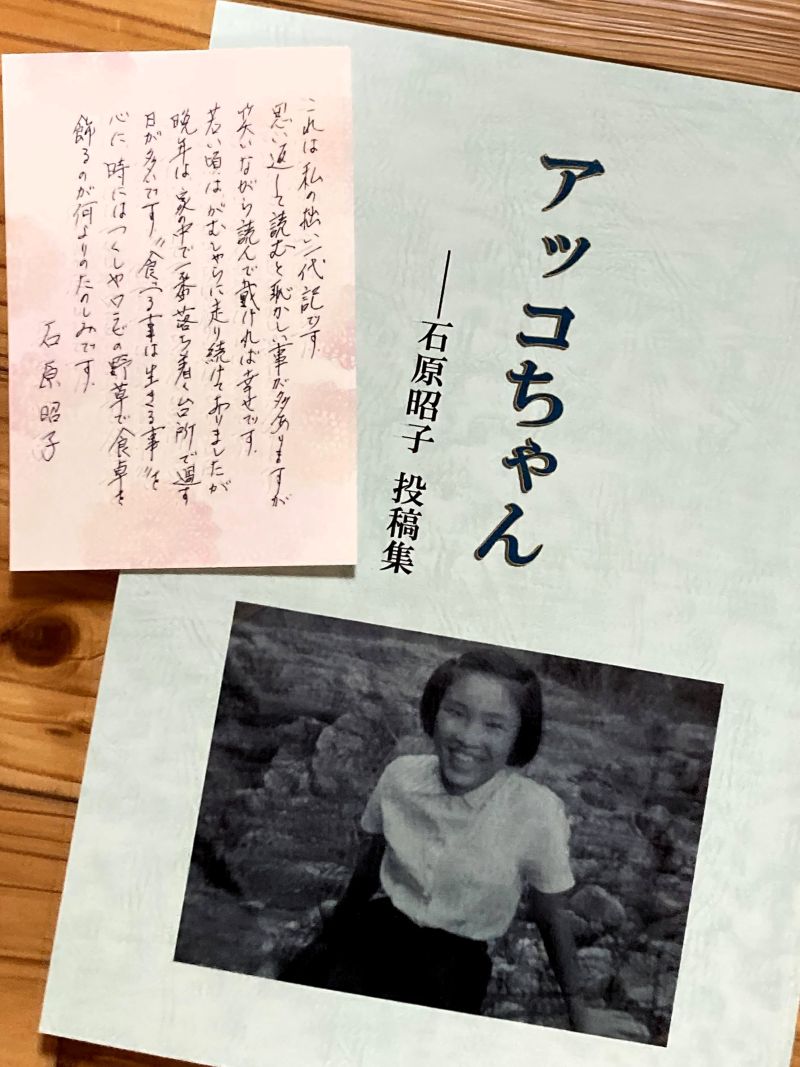 アッコちゃん
──石原昭子 投稿集
これは私の拙い一代記です。
思い返して読むと恥かしい事が多々ありますが
笑いながら読んで戴ければ幸せです。
若い頃はがむしゃらに走り続けておりましたが
晩年は家の中で一番落ち着く台所で過す
日が多いです。“食べる事は生きる事”を
心に、時にはつくしやワラビの野草で食卓を
飾るのが何よりのたのしみです。
石原昭子